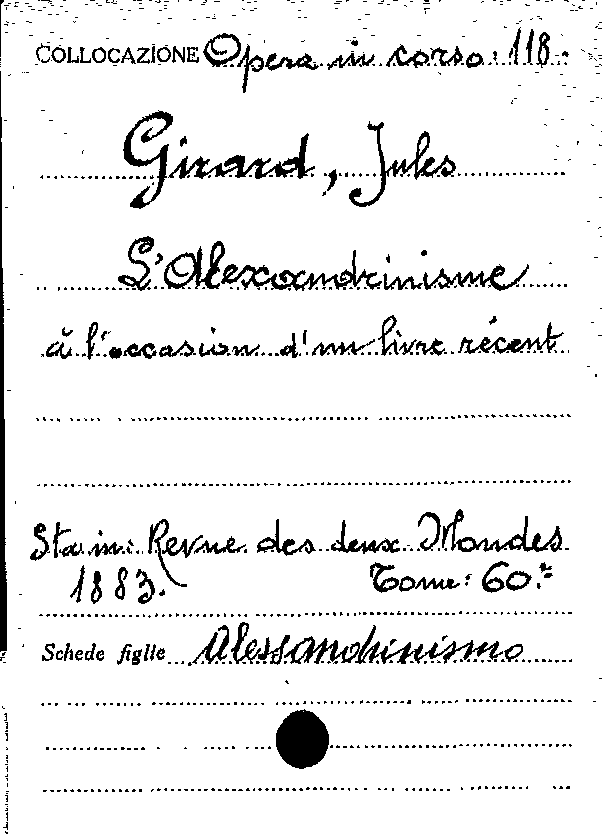 COLLOCAZIONE Opera in corso: 118.
Girard, Jules
L'Alexandrinisme
à l'occasion d'un livre récent
Sta in: Revue des deux Mondes
1883. Tome: 60.º
Schede figlie Alessandrinismo